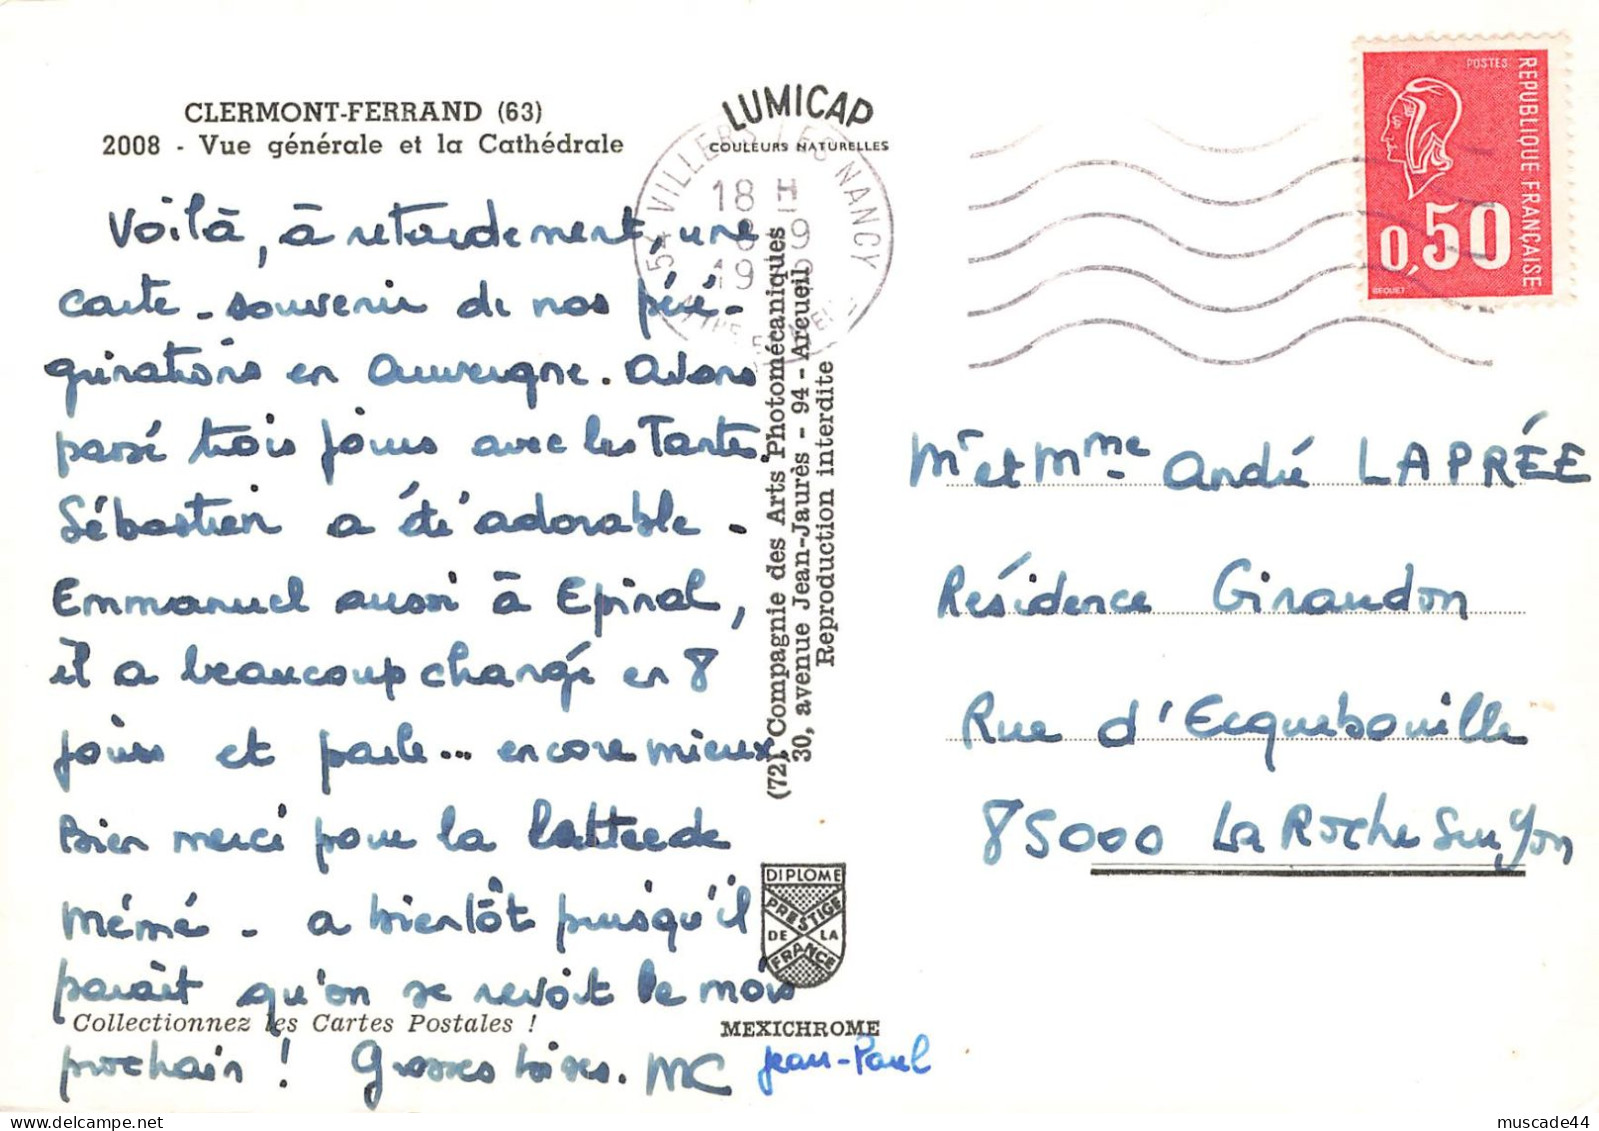 CLERMONT-FERRAND (63)
2008 - Vue générale et la Cathédrale
Voilà, à retardement, une
carte-souvenir de nos péré-
grinations en Auvergne. Avons
passé trois jours avec les Tartes.
Sébastien a été adorable -
Emmanuel aussi à Epinal,
il a beaucoup changé en 8
jours et parle... encore mieux
Bien merci pour la lettre de
Mémé - a bientôt puisqu'il
paraît qu'on se revoit le mois
prochain ! Grosses bises. MC Jean-Paul
Collectionnez les Cartes Postales !
LUMICAP
COULEURS NATURELLES
54 VILLERS LES NANCY
18 H
(72) Compagnie des Arts Photomécaniques
30, avenue Jean-Jaurès - 94 - Arcueil
Reproduction interdite
DIPLOME
PRESTIGE
DE LA
FRANCE
MEXICHROME
POSTES
REPUBLIQUE FRANÇAISE
0,50
BEQUET
Mr et Mme André LAPRÉE
Résidence Giraudon
Rue d'Ecquebouille
85000 La Roche Sur Yon
muscade44